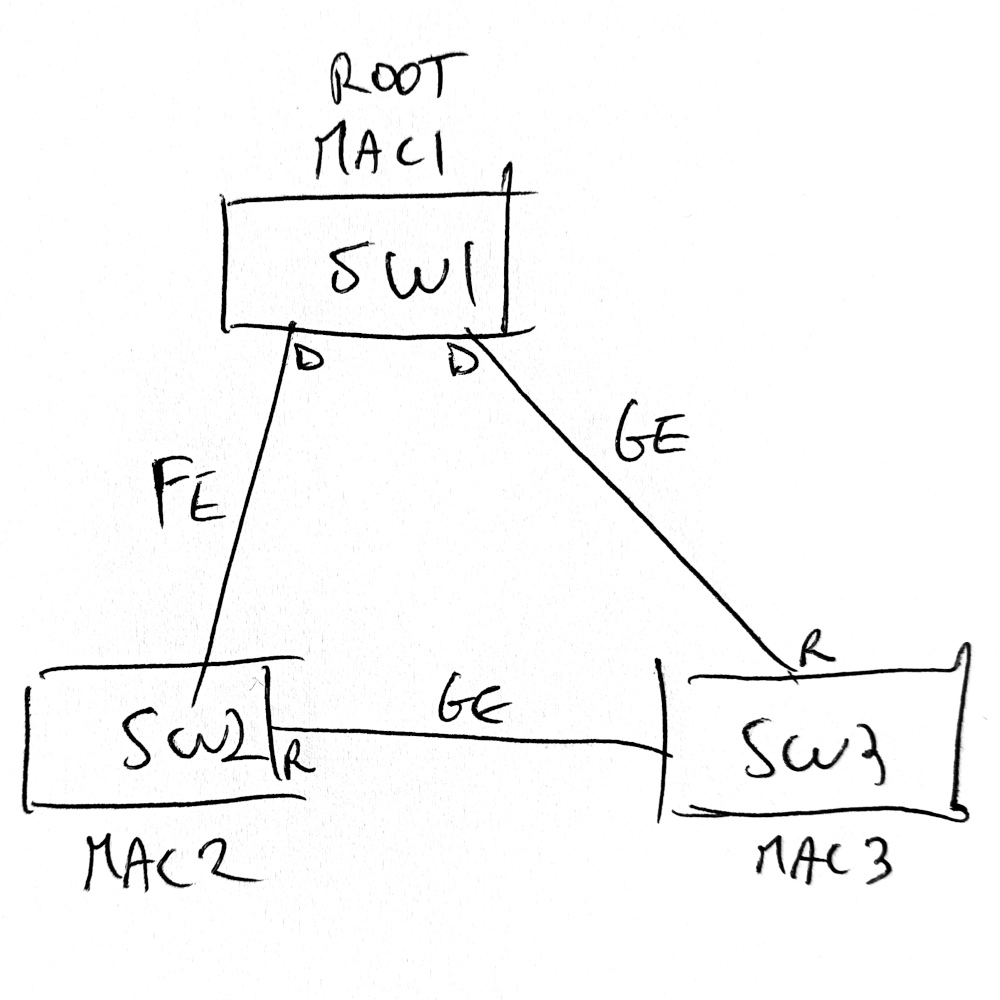 ROOT
MAC1
SW1
D
D
GE
FE
R
GE
SW2
R
SW3
MAC2
MAC3